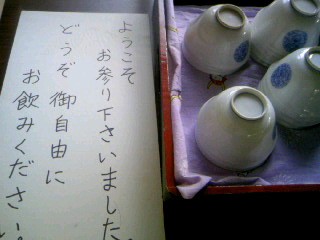 ようこそ
お参り下さいました。
どうぞ御自由に
お飲みください。